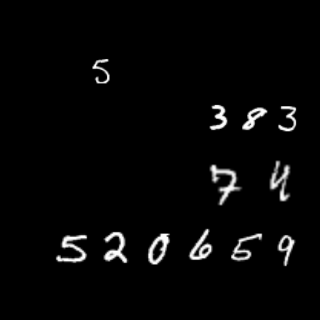 5
383
74
520659